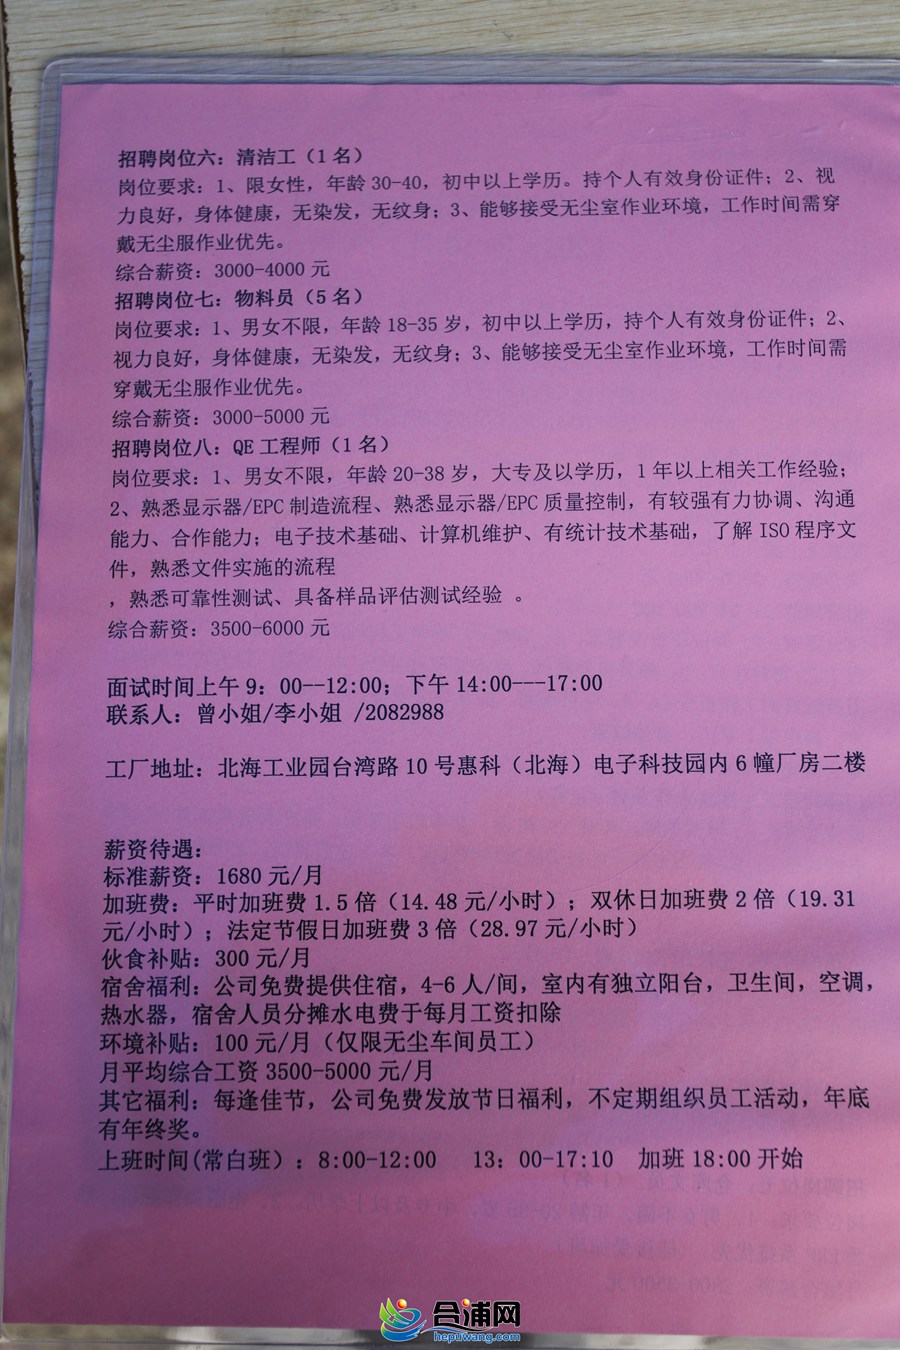 招聘岗位六：清洁工（1名）
岗位要求：1、限女性，年龄30-40，初中以上学历。持个人有效身份证件；2、视
力良好，身体健康，无染发，无纹身；3、能够接受无尘室作业环境，工作时间需穿
戴无尘服作业优先。
综合薪资：3000-4000元
招聘岗位七：物料员（5名）
岗位要求：1、男女不限，年龄18-35岁，初中以上学历，持个人有效身份证件；2、
视力良好，身体健康，无染发，无纹身；3、能够接受无尘室作业环境，工作时间需
穿戴无尘服作业优先。
综合薪资：3000-5000元
招聘岗位八：QE工程师（1名）
岗位要求：1、男女不限，年龄20-38岁，大专及以学历，1年以上相关工作经验；
2、熟悉显示器/EPC制造流程、熟悉显示器/EPC质量控制，有较强有力协调、沟通
能力、合作能力；电子技术基础、计算机维护、有统计技术基础，了解ISO程序文
件，熟悉文件实施的流程
，熟悉可靠性测试、具备样品评估测试经验 。
综合薪资：3500-6000元
面试时间上午9：00--12:00；下午14:00---17:00
联系人：曾小姐/李小姐 /2082988
工厂地址：北海工业园台湾路10号惠科（北海）电子科技园内6幢厂房二楼
薪资待遇：
标准薪资：1680元/月
加班费：平时加班费1.5倍（14.48元/小时）；双休日加班费2倍（19.31
元/小时）；法定节假日加班费3倍（28.97元/小时）
伙食补贴：300元/月
宿舍福利：公司免费提供住宿，4-6人/间，室内有独立阳台，卫生间，空调，
热水器，宿舍人员分摊水电费于每月工资扣除
环境补贴：100元/月（仅限无尘车间员工）
月平均综合工资3500-5000元/月
其它福利：每逢佳节，公司免费发放节日福利，不定期组织员工活动，年底
有年终奖。
上班时间(常白班）：8:00-12:00 13：00-17:10 加班18:00开始
合浦网
hepuwang.com